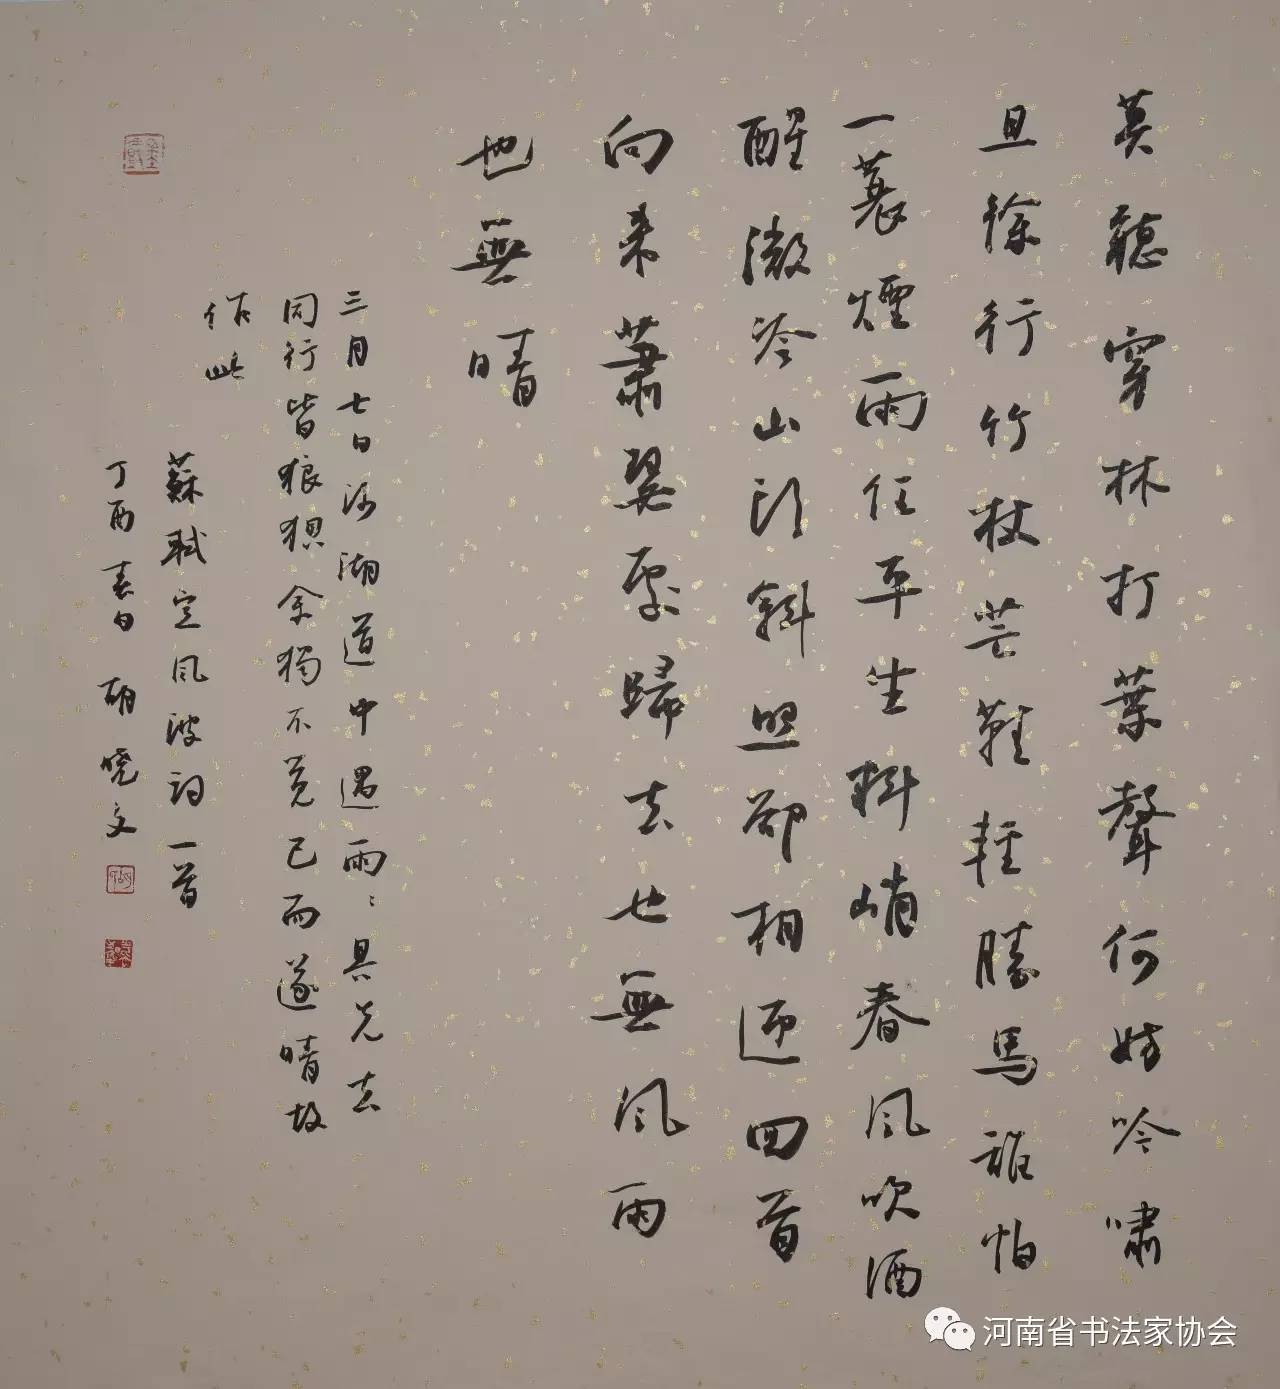 莫聽穿林打葉聲何妨吟嘯
且徐行竹杖芒鞋輕勝馬誰怕
一蓑煙雨任平生料峭春風吹酒
醒微冷山頭斜照却相迎回首
向來蕭瑟處歸去也無風雨
也無晴
三月七日沙湖道中遇雨〻具先去
同行皆狼狽余獨不覺已而遂晴故
作此
蘇軾定風波詞一首
丁酉春日胡曉文
河南省书法家协会